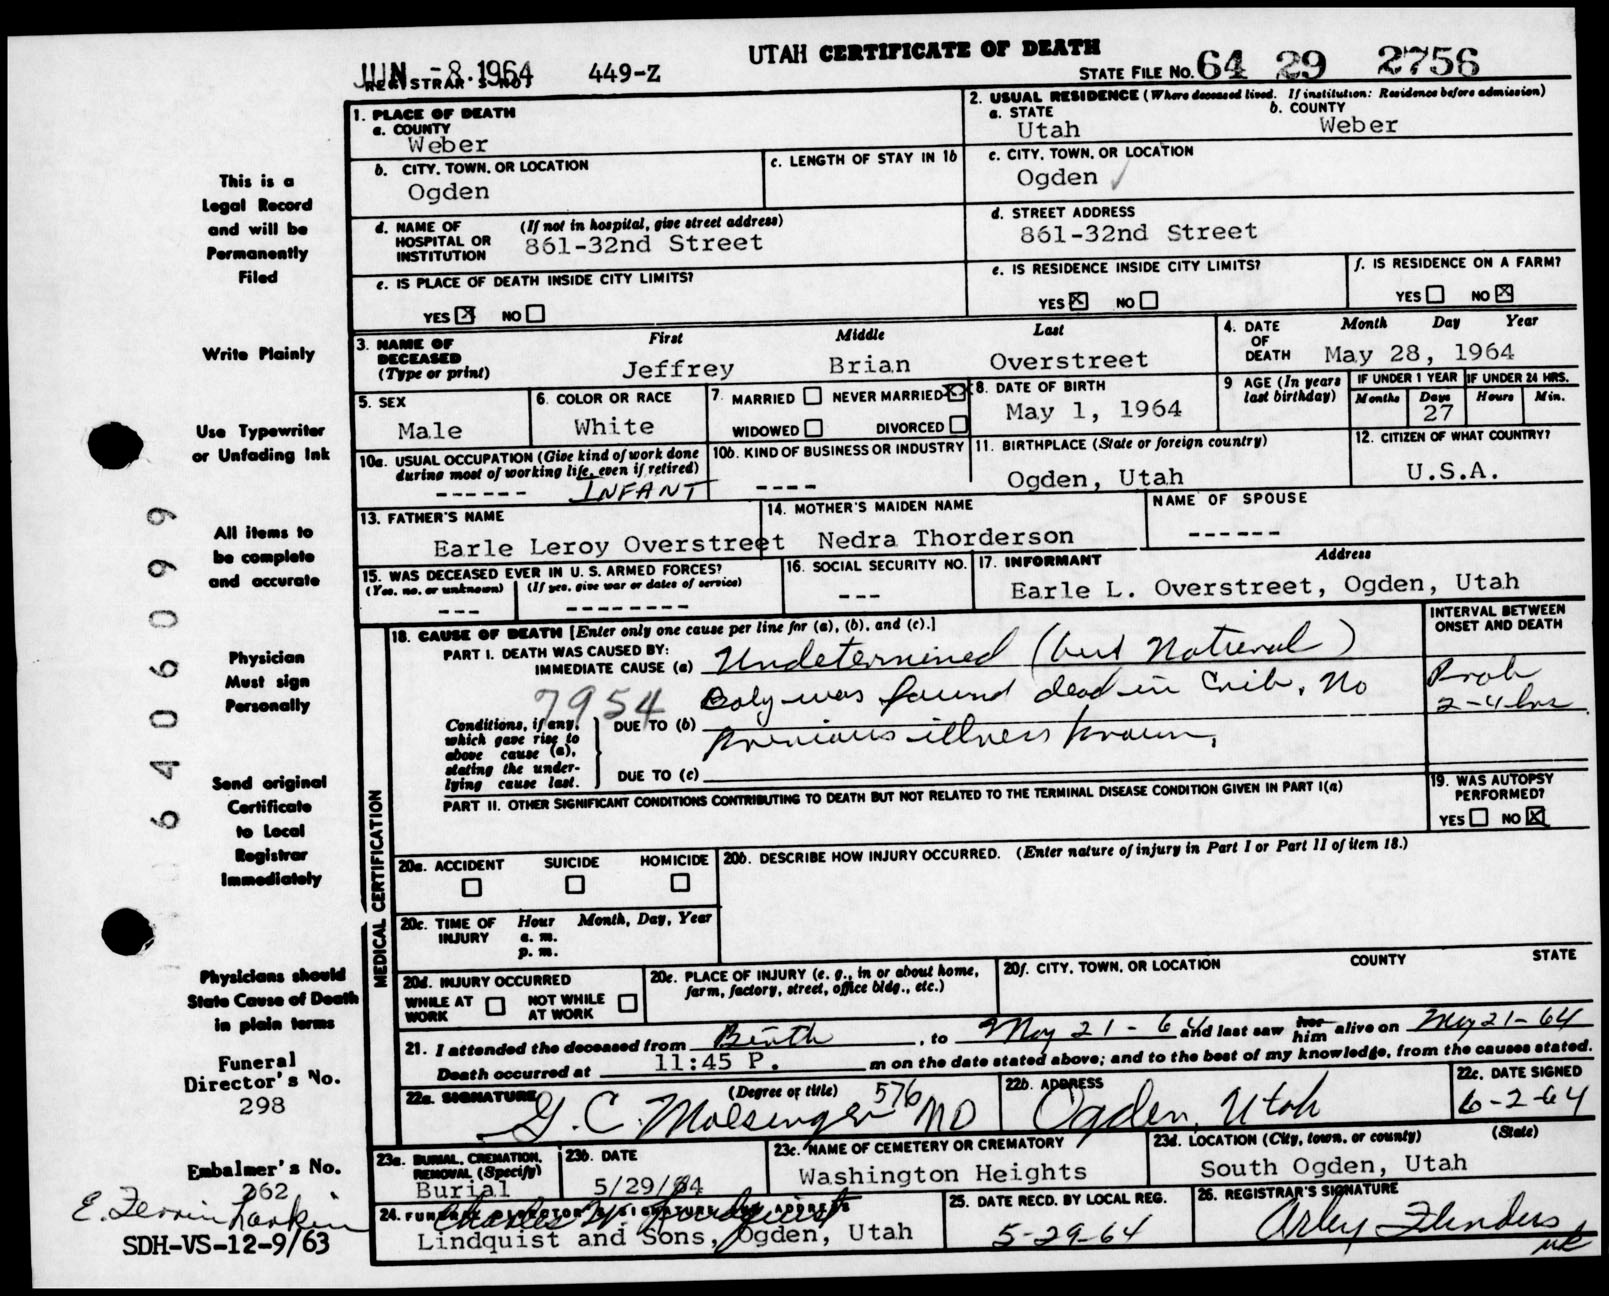 UTAH CERTIFICATE OF DEATH
JUN -8.1964 449-Z
REGISTRAR'S NO.
STATE FILE NO. 64 29 2756
1. PLACE OF DEATH
a. COUNTY
Weber
2. USUAL RESIDENCE (Where deceased lived. If institution: Residence before admission)
a. STATE b. COUNTY
Utah Weber
b. CITY, TOWN, OR LOCATION
Ogden
c. LENGTH OF STAY IN 1b
c. CITY, TOWN, OR LOCATION
Ogden
d. NAME OF HOSPITAL OR INSTITUTION (If not in hospital, give street address)
861-32nd Street
d. STREET ADDRESS
861-32nd Street
e. IS PLACE OF DEATH INSIDE CITY LIMITS?
YES ☒ NO ☐
e. IS RESIDENCE INSIDE CITY LIMITS?
YES ☒ NO ☐
f. IS RESIDENCE ON A FARM?
YES ☐ NO ☒
3. NAME OF DECEASED (Type or print)
First Middle Last
Jeffrey Brian Overstreet
4. DATE OF DEATH
Month Day Year
May 28, 1964
5. SEX
Male
6. COLOR OR RACE
White
7. MARRIED ☐ NEVER MARRIED ☒
WIDOWED ☐ DIVORCED ☐
8. DATE OF BIRTH
May 1, 1964
9 AGE (In years last birthday)
IF UNDER 1 YEAR
Months Days
27
IF UNDER 24 HRS.
Hours Min.
10a. USUAL OCCUPATION (Give kind of work done during most of working life, even if retired)
------ INFANT
10b. KIND OF BUSINESS OR INDUSTRY
----
11. BIRTHPLACE (State or foreign country)
Ogden, Utah
12. CITIZEN OF WHAT COUNTRY?
U.S.A.
13. FATHER'S NAME
Earle Leroy Overstreet
14. MOTHER'S MAIDEN NAME
Nedra Thorderson
NAME OF SPOUSE
------
15. WAS DECEASED EVER IN U. S. ARMED FORCES?
(Yes, no, or unknown) (If yes, give war or dates of service)
--- --------
16. SOCIAL SECURITY NO.
---
17. INFORMANT Address
Earle L. Overstreet, Ogden, Utah
MEDICAL CERTIFICATION
18. CAUSE OF DEATH [Enter only one cause per line for (a), (b), and (c).]
INTERVAL BETWEEN ONSET AND DEATH
PART I. DEATH WAS CAUSED BY:
IMMEDIATE CAUSE (a) Undetermined (but Natural)
7954
Baby was found dead in Crib. No
Prob
2-4 hrs
Conditions, if any, which gave rise to above cause (a), stating the underlying cause last.
DUE TO (b) previous illness known.
DUE TO (c)
PART II. OTHER SIGNIFICANT CONDITIONS CONTRIBUTING TO DEATH BUT NOT RELATED TO THE TERMINAL DISEASE CONDITION GIVEN IN PART I(a)
19. WAS AUTOPSY PERFORMED?
YES ☐ NO ☒
20a. ACCIDENT ☐ SUICIDE ☐ HOMICIDE ☐
20b. DESCRIBE HOW INJURY OCCURRED. (Enter nature of injury in Part I or Part II of item 18.)
20c. TIME OF INJURY Hour Month, Day, Year
a. m.
p. m.
20d. INJURY OCCURRED
WHILE AT WORK ☐ NOT WHILE AT WORK ☐
20e. PLACE OF INJURY (e. g., in or about home, farm, factory, street, office bldg., etc.)
20f. CITY, TOWN, OR LOCATION COUNTY STATE
21. I attended the deceased from Birth, to May 21-64 and last saw her him alive on May 21-64
Death occurred at 11:45 P. m on the date stated above; and to the best of my knowledge, from the causes stated.
22a. SIGNATURE (Degree or title)
G. C. Molsinger 576 MD
22b. ADDRESS
Ogden, Utah
22c. DATE SIGNED
6-2-64
23a. BURIAL, CREMATION, REMOVAL (Specify)
Burial
23b. DATE
5/29/64
23c. NAME OF CEMETERY OR CREMATORY
Washington Heights
23d. LOCATION (City, town, or county) (State)
South Ogden, Utah
24. FUNERAL DIRECTOR'S SIGNATURE AND ADDRESS
Charles W. Lindquist
Lindquist and Sons, Ogden, Utah
25. DATE RECD. BY LOCAL REG.
5-29-64
26. REGISTRAR'S SIGNATURE
Arley Flinders
mk
This is a
Legal Record
and will be
Permanently
Filed
Write Plainly
Use Typewriter
or Unfading Ink
All items to
be complete
and accurate
Physician
Must sign
Personally
Send original
Certificate
to Local
Registrar
Immediately
Physicians should
State Cause of Death
in plain terms
Funeral
Director's No.
298
Embalmer's No.
262
E. Ferrin Larkin
SDH-VS-12-9/63
6406099